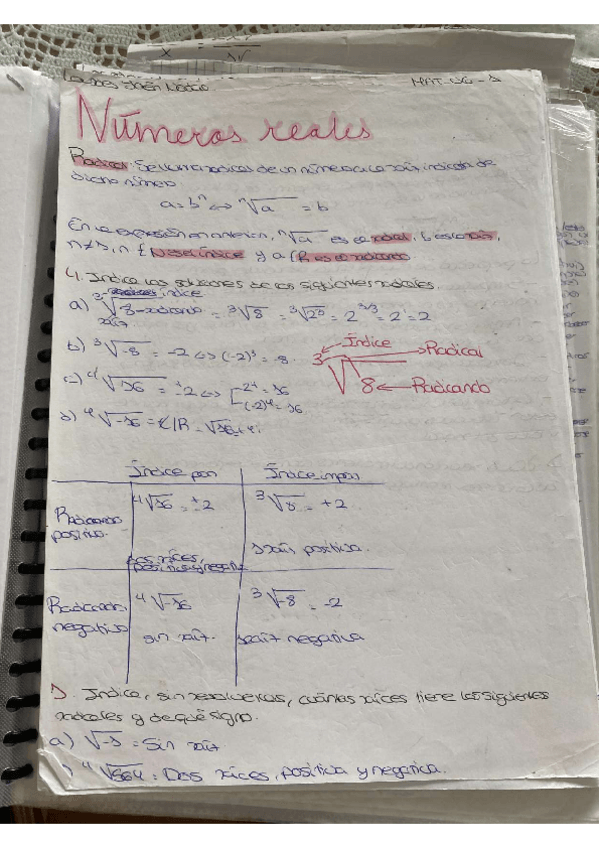 Números reales
Radical: Se llama radical de un número a la raíz indicada de
dicho número.
a = bⁿ ⇔ ⁿ√a = b
En la expresión anterior, ⁿ√a es el radical, b es la raíz,
n es el índice y a es el radicando
4. Indica las soluciones de los siguientes radicales.
índice
a) ³√8 radicando = ³√8 = ³√2³ = 2^3/3 = 2¹ = 2
raíz
b) ³√-8 = -2 ⇔ (-2)³ = -8
c) ⁴√16 = ±2 ⇔ [ 2⁴ = 16
(-2)⁴ = 16
d) ⁴√-16 = ∉ℝ
Índice
Radical
³√8
Radicando
Índice par Índice impar
Radicando positivo. ⁴√16 = ±2 ³√8 = +2
Dos raíces, positiva y negativa 1 raíz positiva.
Radicando negativo ⁴√-16 ³√-8 = -2
sin raíz. 1 raíz negativa
1. Indica, sin resolverlas, cuántas raíces tiene los siguientes
radicales y de qué signo.
a) √-5 = Sin raíz.
⁴√664 = Dos raíces, positiva y negativa.